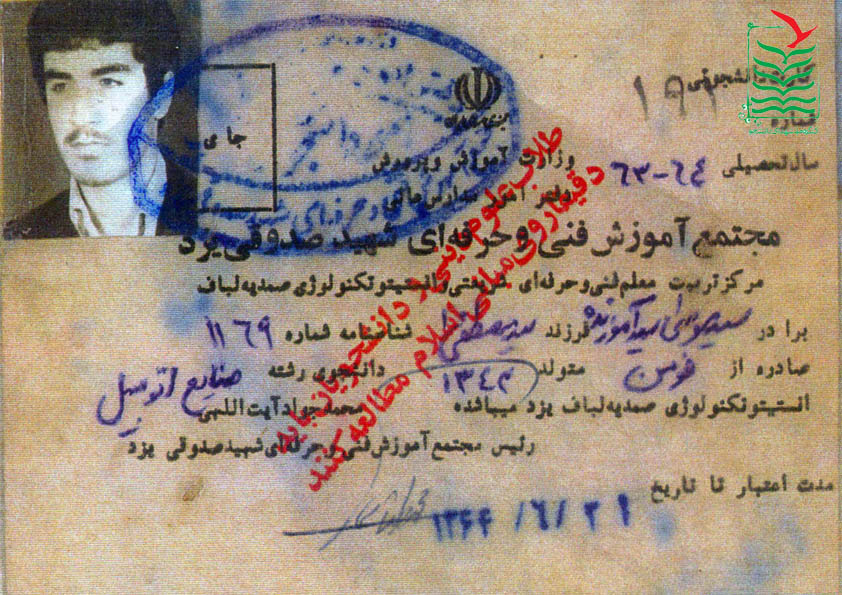 کارت دانشجوئی
شماره ۱۹۱
سال تحصیلی ۶۴-۶۳
جای
وزارت آموزش و پرورش
دفتر امور مدارس عالی
مجتمع آموزش فنی و حرفه‌ای شهید صدوقی یزد
مرکز تربیت معلم فنی و حرفه‌ای شریعتی و انستیتو تکنولوژی صمدیه لباف
برادر سید موسی سیدآموزنده فرزند سید مصطفی شناسنامه شماره ۱۱۶۹
صادره از فومن متولد ۱۳۴۲ دانشجوی رشته صنایع اتومبیل
انستیتو تکنولوژی صمدیه لباف یزد میباشد
محمدجواد آیت‌اللهی
رئیس مجتمع آموزش فنی و حرفه‌ای شهید صدوقی یزد
مدت اعتبار تا تاریخ
۱۳۶۴/۶/۳۱
طلاب علوم دینی و دانشجویان باید
دقیقا روی مبانی اسلام مطالعه کنند